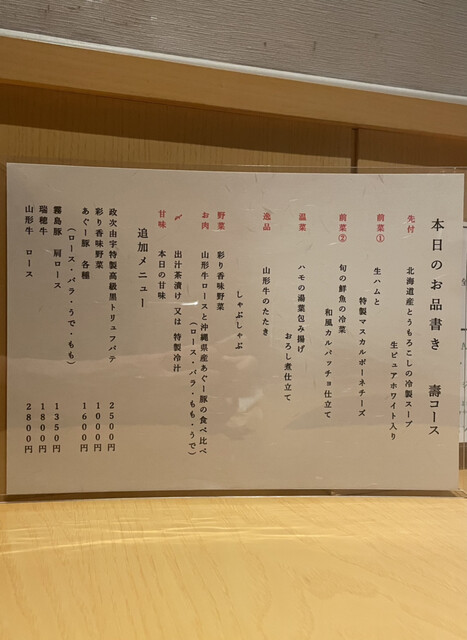 本日のお品書き 壽コース
先付 北海道産とうもろこしの冷製スープ
生ピュアホワイト入り
前菜① 生ハムと
特製マスカルポーネチーズ
前菜② 旬の鮮魚の冷菜
和風カルパッチョ仕立て
温菜 ハモの湯葉包み揚げ
おろし煮仕立て
逸品 山形牛のたたき
しゃぶしゃぶ
野菜 彩り香味野菜
お肉 山形牛ロースと沖縄県産あぐー豚の食べ比べ
(ロース・バラ・もも・うで)
〆 出汁茶漬け 又は 特製冷汁
甘味 本日の甘味
追加メニュー
政次由宇特製高級黒トリュフパテ 2500円
彩り香味野菜 1000円
あぐー豚 各種 1600円
(ロース・バラ・うで・もも)
霧島豚 肩ロース 1350円
瑞穂牛 1800円
山形牛 ロース 2800円